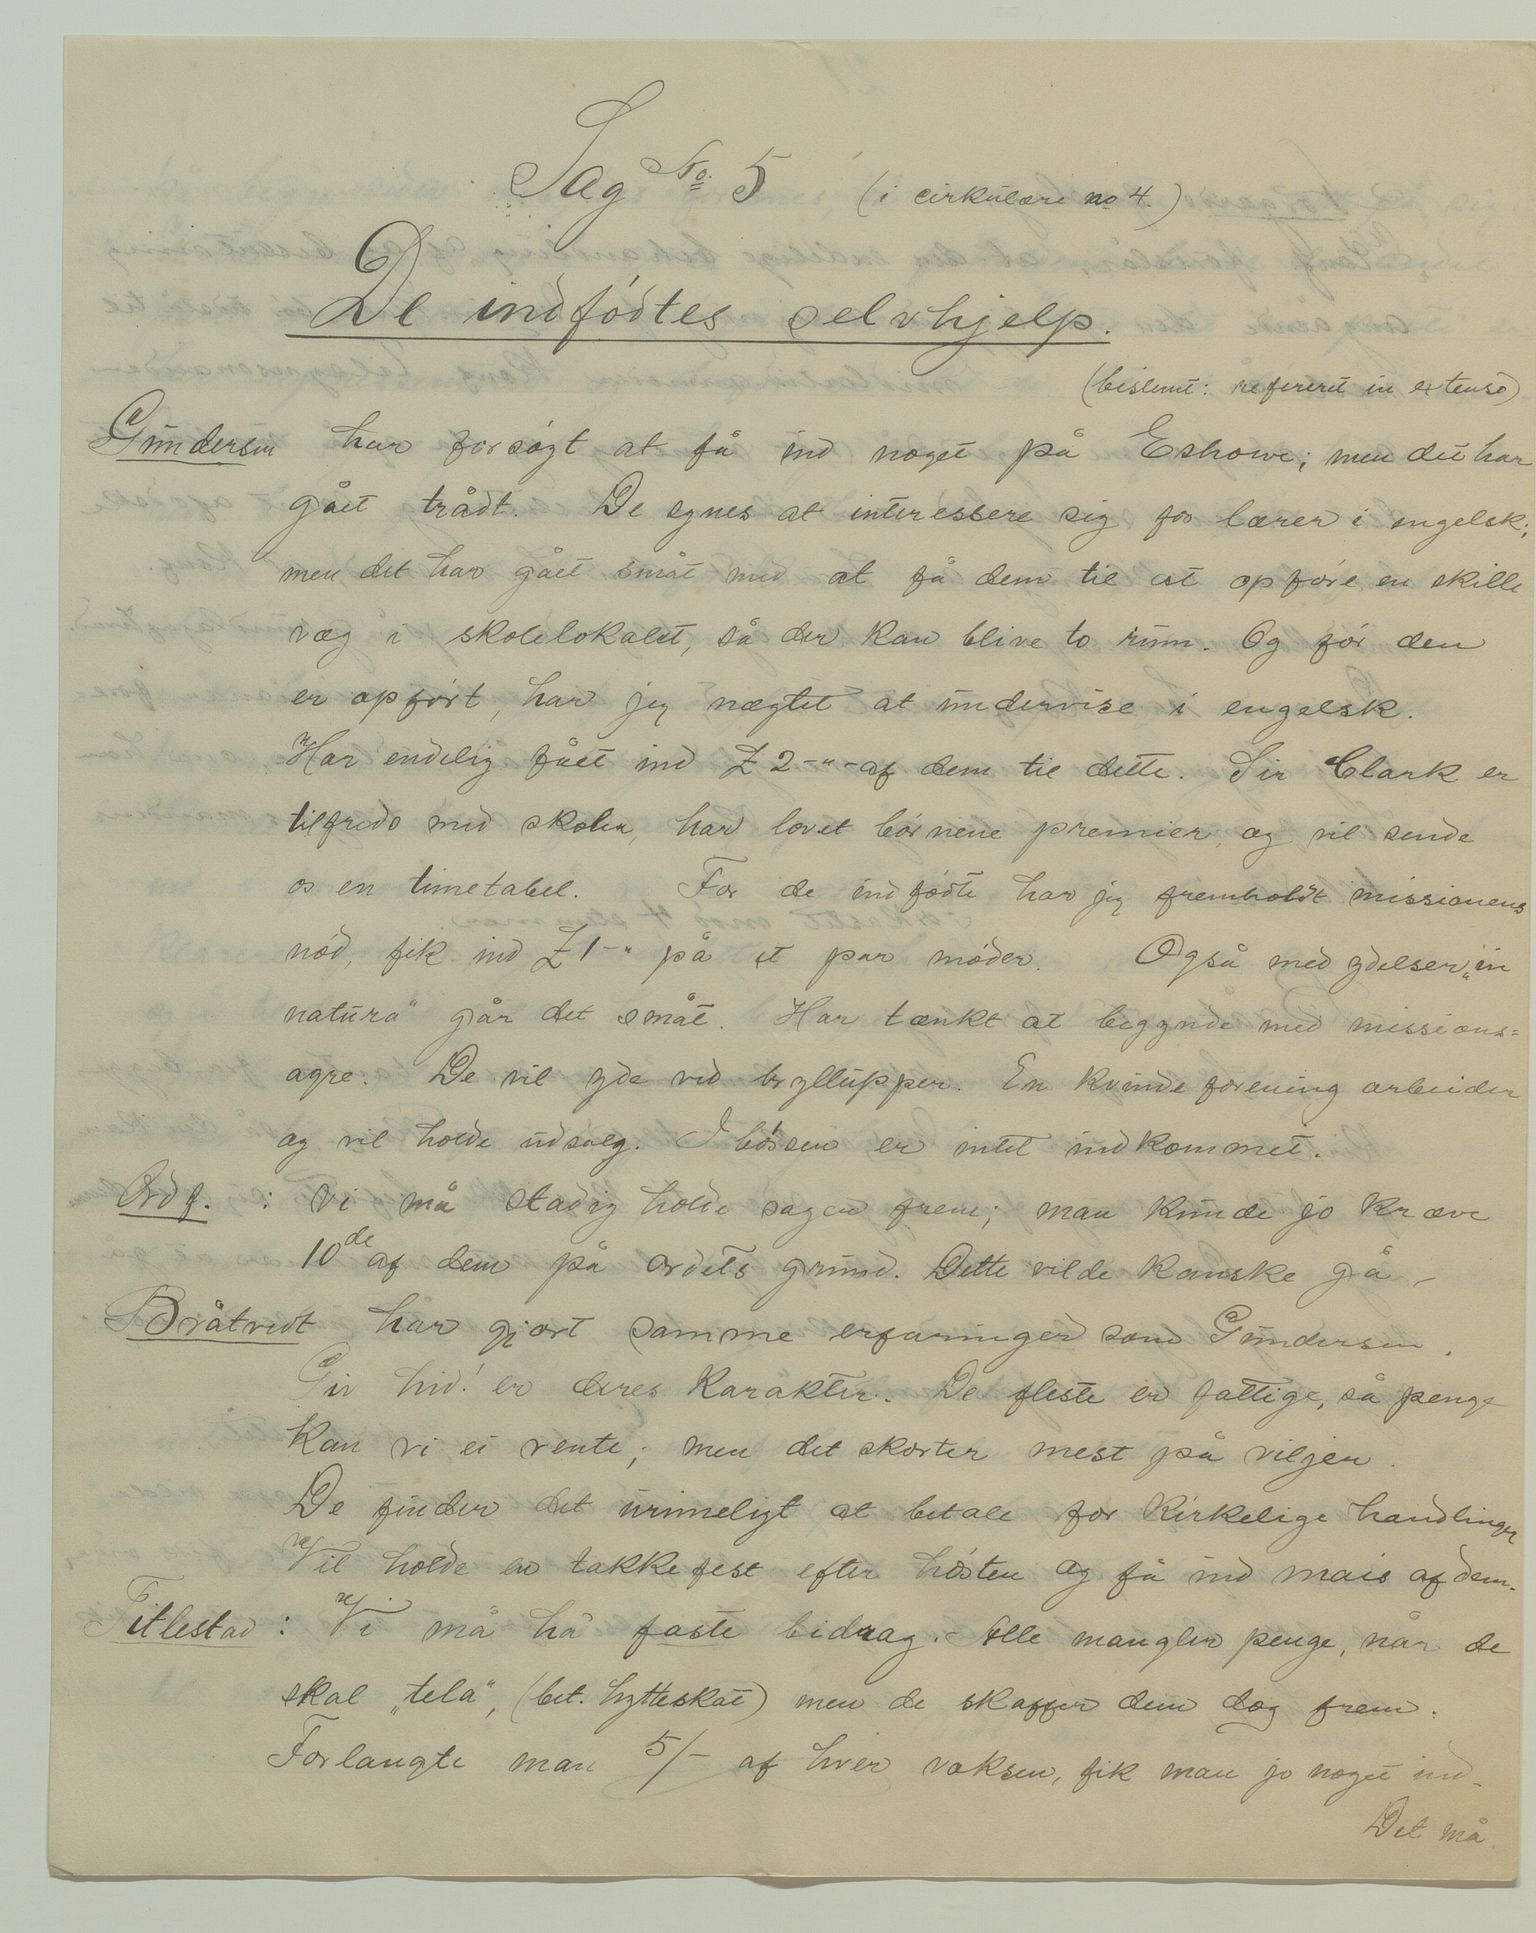 Sag No. 5 (i cirkulære no 4.)
De indfødtes selvhjelp.
(beslemt: refereret in extenso)
Gundersen har forsøgt at få ind noget på Eshowe; men det har
gået trådt. De synes at interessere sig for lærer i engelsk;
men det har gået småt med at få dem til at opføre en skille
væg i skolelokalet, så der kan blive to rum. Og før den
er opført, har jeg nægtet at undervise i engelsk.
Har endelig fået ind £ 2-"- af dem til dette. Sir Clark er
tilfreds med skolen, har lovet børnene premier, og vil sende
os en timetabel. For de indfødte har jeg fremholdt missionens
nød, fik ind £ 1-" på et par møder. Også med ydelser „in
natura" går det småt. Har tænkt at begynde med missions=
agre. De vil yde ved bryllupper. En kvindeforening arbeider
og vil holde udsalg. I bøssen er intet indkommet.
Ordf. : Vi må stadig holde sagen frem; man kunde jo kræve
10de af dem på ordets grund. Dette vilde kanske gå –
Bråtvedt har gjort samme erfaringer som Gundersen.
Giv hid! er deres karakter. De fleste er fattige, så penge
kan vi ei vente; men det skorter mest på viljen.
De finder det urimeligt at betale for kirkelige handlinger
Vil holde en takkefest efter høsten og få ind mais af dem.
Titlestad : Vi må há faste bidrag. Alle mangler penge, når de
skal „tela", (bet. hytteskat) men de skaffer dem dog frem.
Forlangte man 5/- af hver voksen, fik man jo noget ind.
Det må